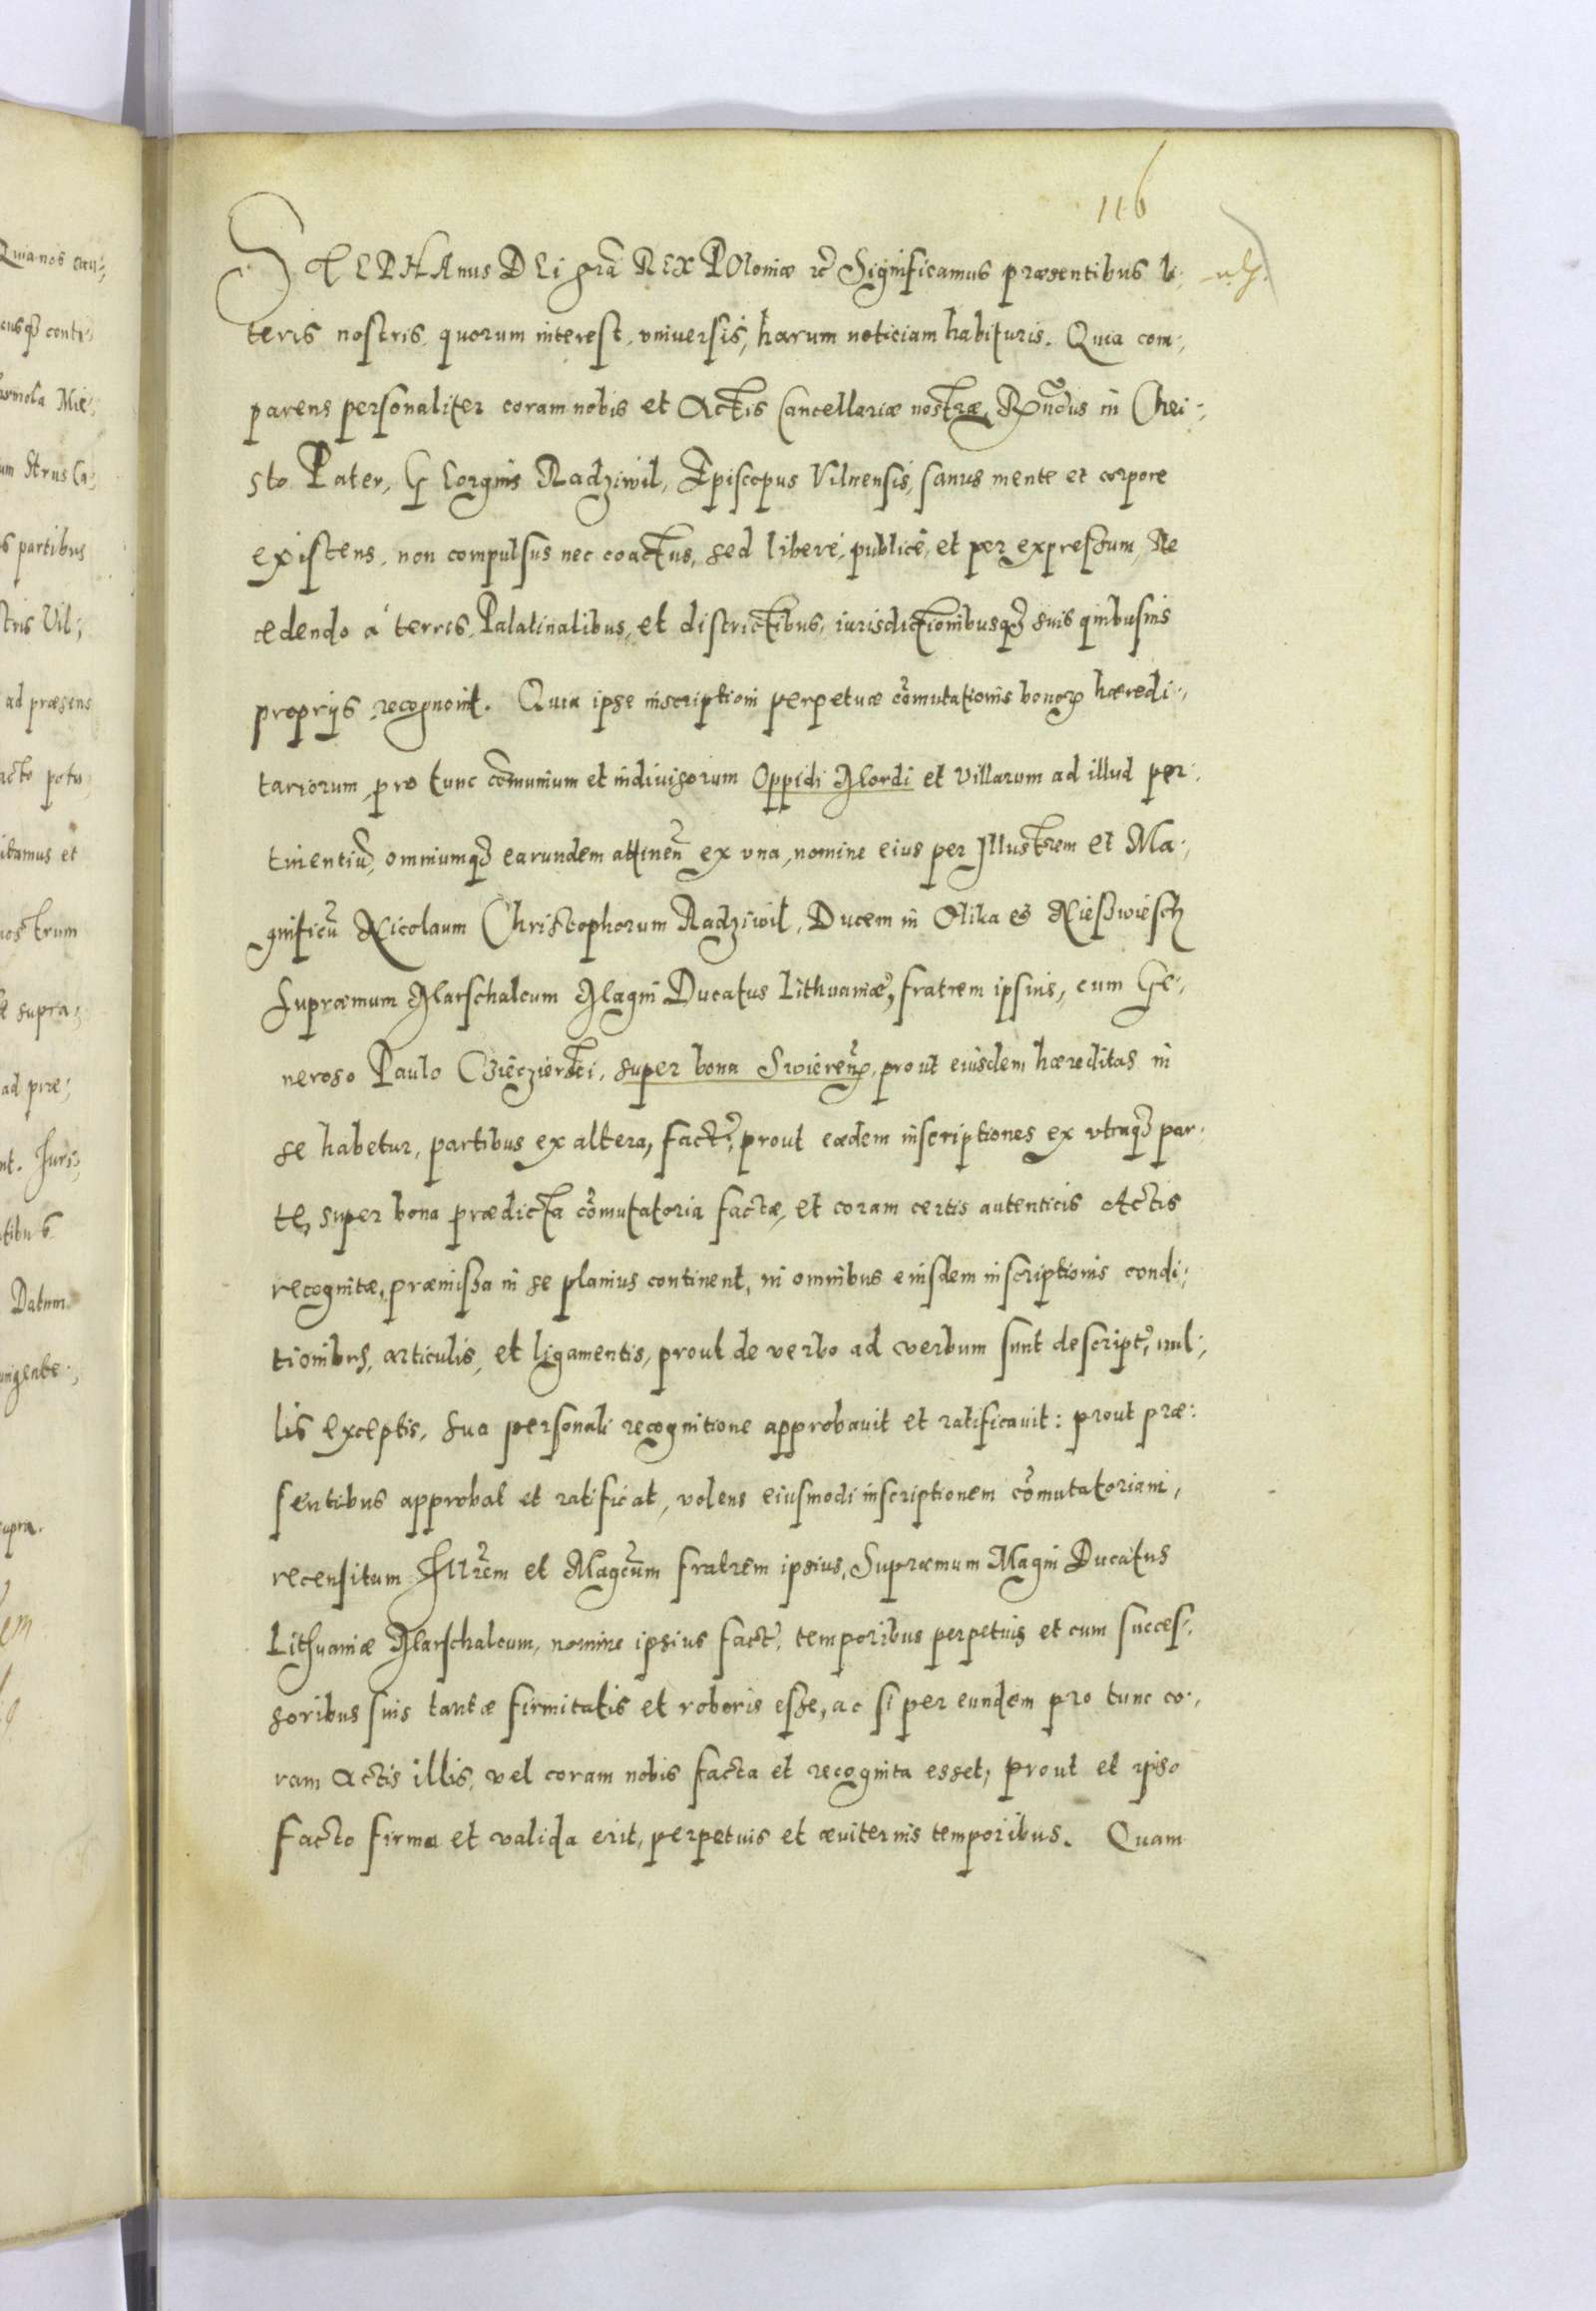 116
STEPHAnus DEi grã REX POloniæ rc̃ Significamus præsentibus li,
teris nostris, quorum interest, vniuersis, harum noticiam habituris. Quia com,
parens personaliter coram nobis et Actis Cancellariæ nostræ, Rñdus in Chri,
sto Pater, Georgius Radziwil, Episcopus Vilnensis, sanus mente et corpore
existens, non compulsus nec coactus, sed liberé, publicé, et per expressum, Re
cedendo á terris, Palatinatibus, et districtibus, iurisdictionibusq̃ suis quibusuis
proprijs, recognouit. Quia ipse inscriptioni perpetuæ cõmutationis bonorũ hæredi,
tariorum, pro tunc cõmunium et indiuisorum Oppidi Mordi et Villarum ad illud per,
tinentiũ, omniumq̃ earundem attineñ ex vna, nomine eius per Illustrem et Ma,
gnificũ Nicolaum Christophorum Radziwil, Ducem in Olika et Nießwiesch
Supræmum Marschalcum Magni Ducatus Lithuaniæ, fratrem ipsius, cum Ge,
neroso Paulo Czieczierski, super bona Swiereñ, prout eiusdem hæreditas in
se habetur, partibus ex altera, fact̃, prout eædem inscriptiones ex vtraq̃ par,
te, super bona prædicta cõmutatoria factæ, et coram certis autenticis Actis
recognitæ, præmissa in se planius continent, in omnibus eiusdem inscriptionis condi,
tionibus, articulis, et ligamentis, prout de verbo ad verbum sunt descript̃, nul,
lis exceptis, sua personali recognitione approbauit et ratificauit: prout præ,
sentibus approbat et ratificat, volens eiusmodi inscriptionem cõmutatoriam,
recensitum Illr̃em et Magcũm fratrem ipsius, Supræmum Magni Ducatus
Lithuaniæ Marschalcum, nomine ipsius fact̃, temporibus perpetuis et cum succes,
soribus suis tantæ firmitatis et roboris esse, ac si per eundem pro tunc co,
ram Actis illis, vel coram nobis facta et recognita esset, prout et ipso
facto firma et valida erit, perpetuis et æuiternis temporibus. Quam